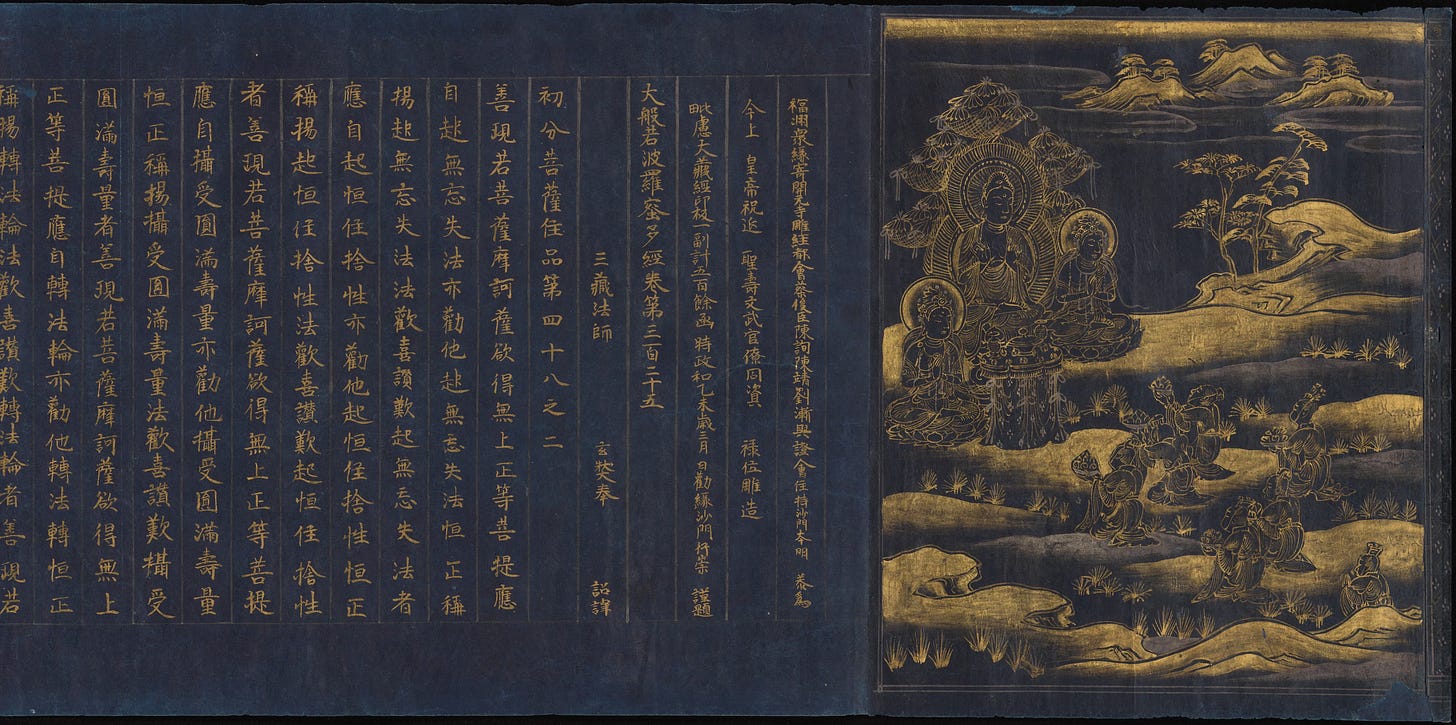 福州衆緣寄開元寺雕經都會蔡俊臣陳詢陳靖劉漸與證會住持沙門本明 恭為
今上 皇帝祝延 聖壽文武官僚同資 祿位雕造
毗盧大藏經印板一副計五百餘函時政和乙未歲三月 日勸緣沙門行崇 謹題
大般若波羅蜜多經卷第三百二十五
三藏法師 玄奘奉 詔譯
初分菩薩住品第四十八之二
善現若菩薩摩訶薩欲得無上正等菩提應
自起無忘失法亦勸他起無忘失法恒正稱
揚起無忘失法法歡喜讚歎起無忘失法者
應自起恒住捨性亦勸他起恒住捨性恒正
稱揚起恒住捨性法歡喜讚歎起恒住捨性
者善現若菩薩摩訶薩欲得無上正等菩提
應自攝受圓滿壽量亦勸他攝受圓滿壽量
恒正稱揚攝受圓滿壽量法歡喜讚歎攝受
圓滿壽量者善現若菩薩摩訶薩欲得無上
正等菩提應自轉法輪亦勸他轉法轉恒正
稱揚轉法輪法歡喜讚歎轉法輪者善現若